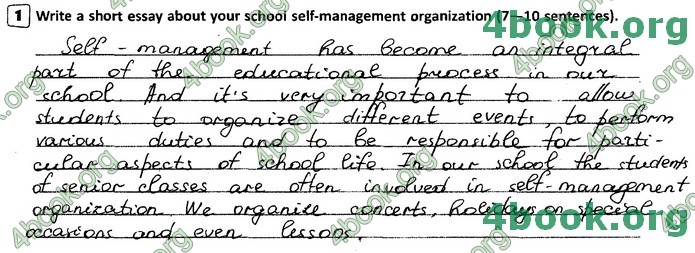 1 Write a short essay about your school self-management organization (7—10 sentences).
Self - management has become an integral
part of the educational process in our
school And it's very important to allow
students to organize different events, to perform
various duties and to be responsible for parti-
cular aspects of school life. In our school the students
of senior classes are often involved in self-management
organization. We organize concerts, holidays on special
occasions and even lessons.
4book.org